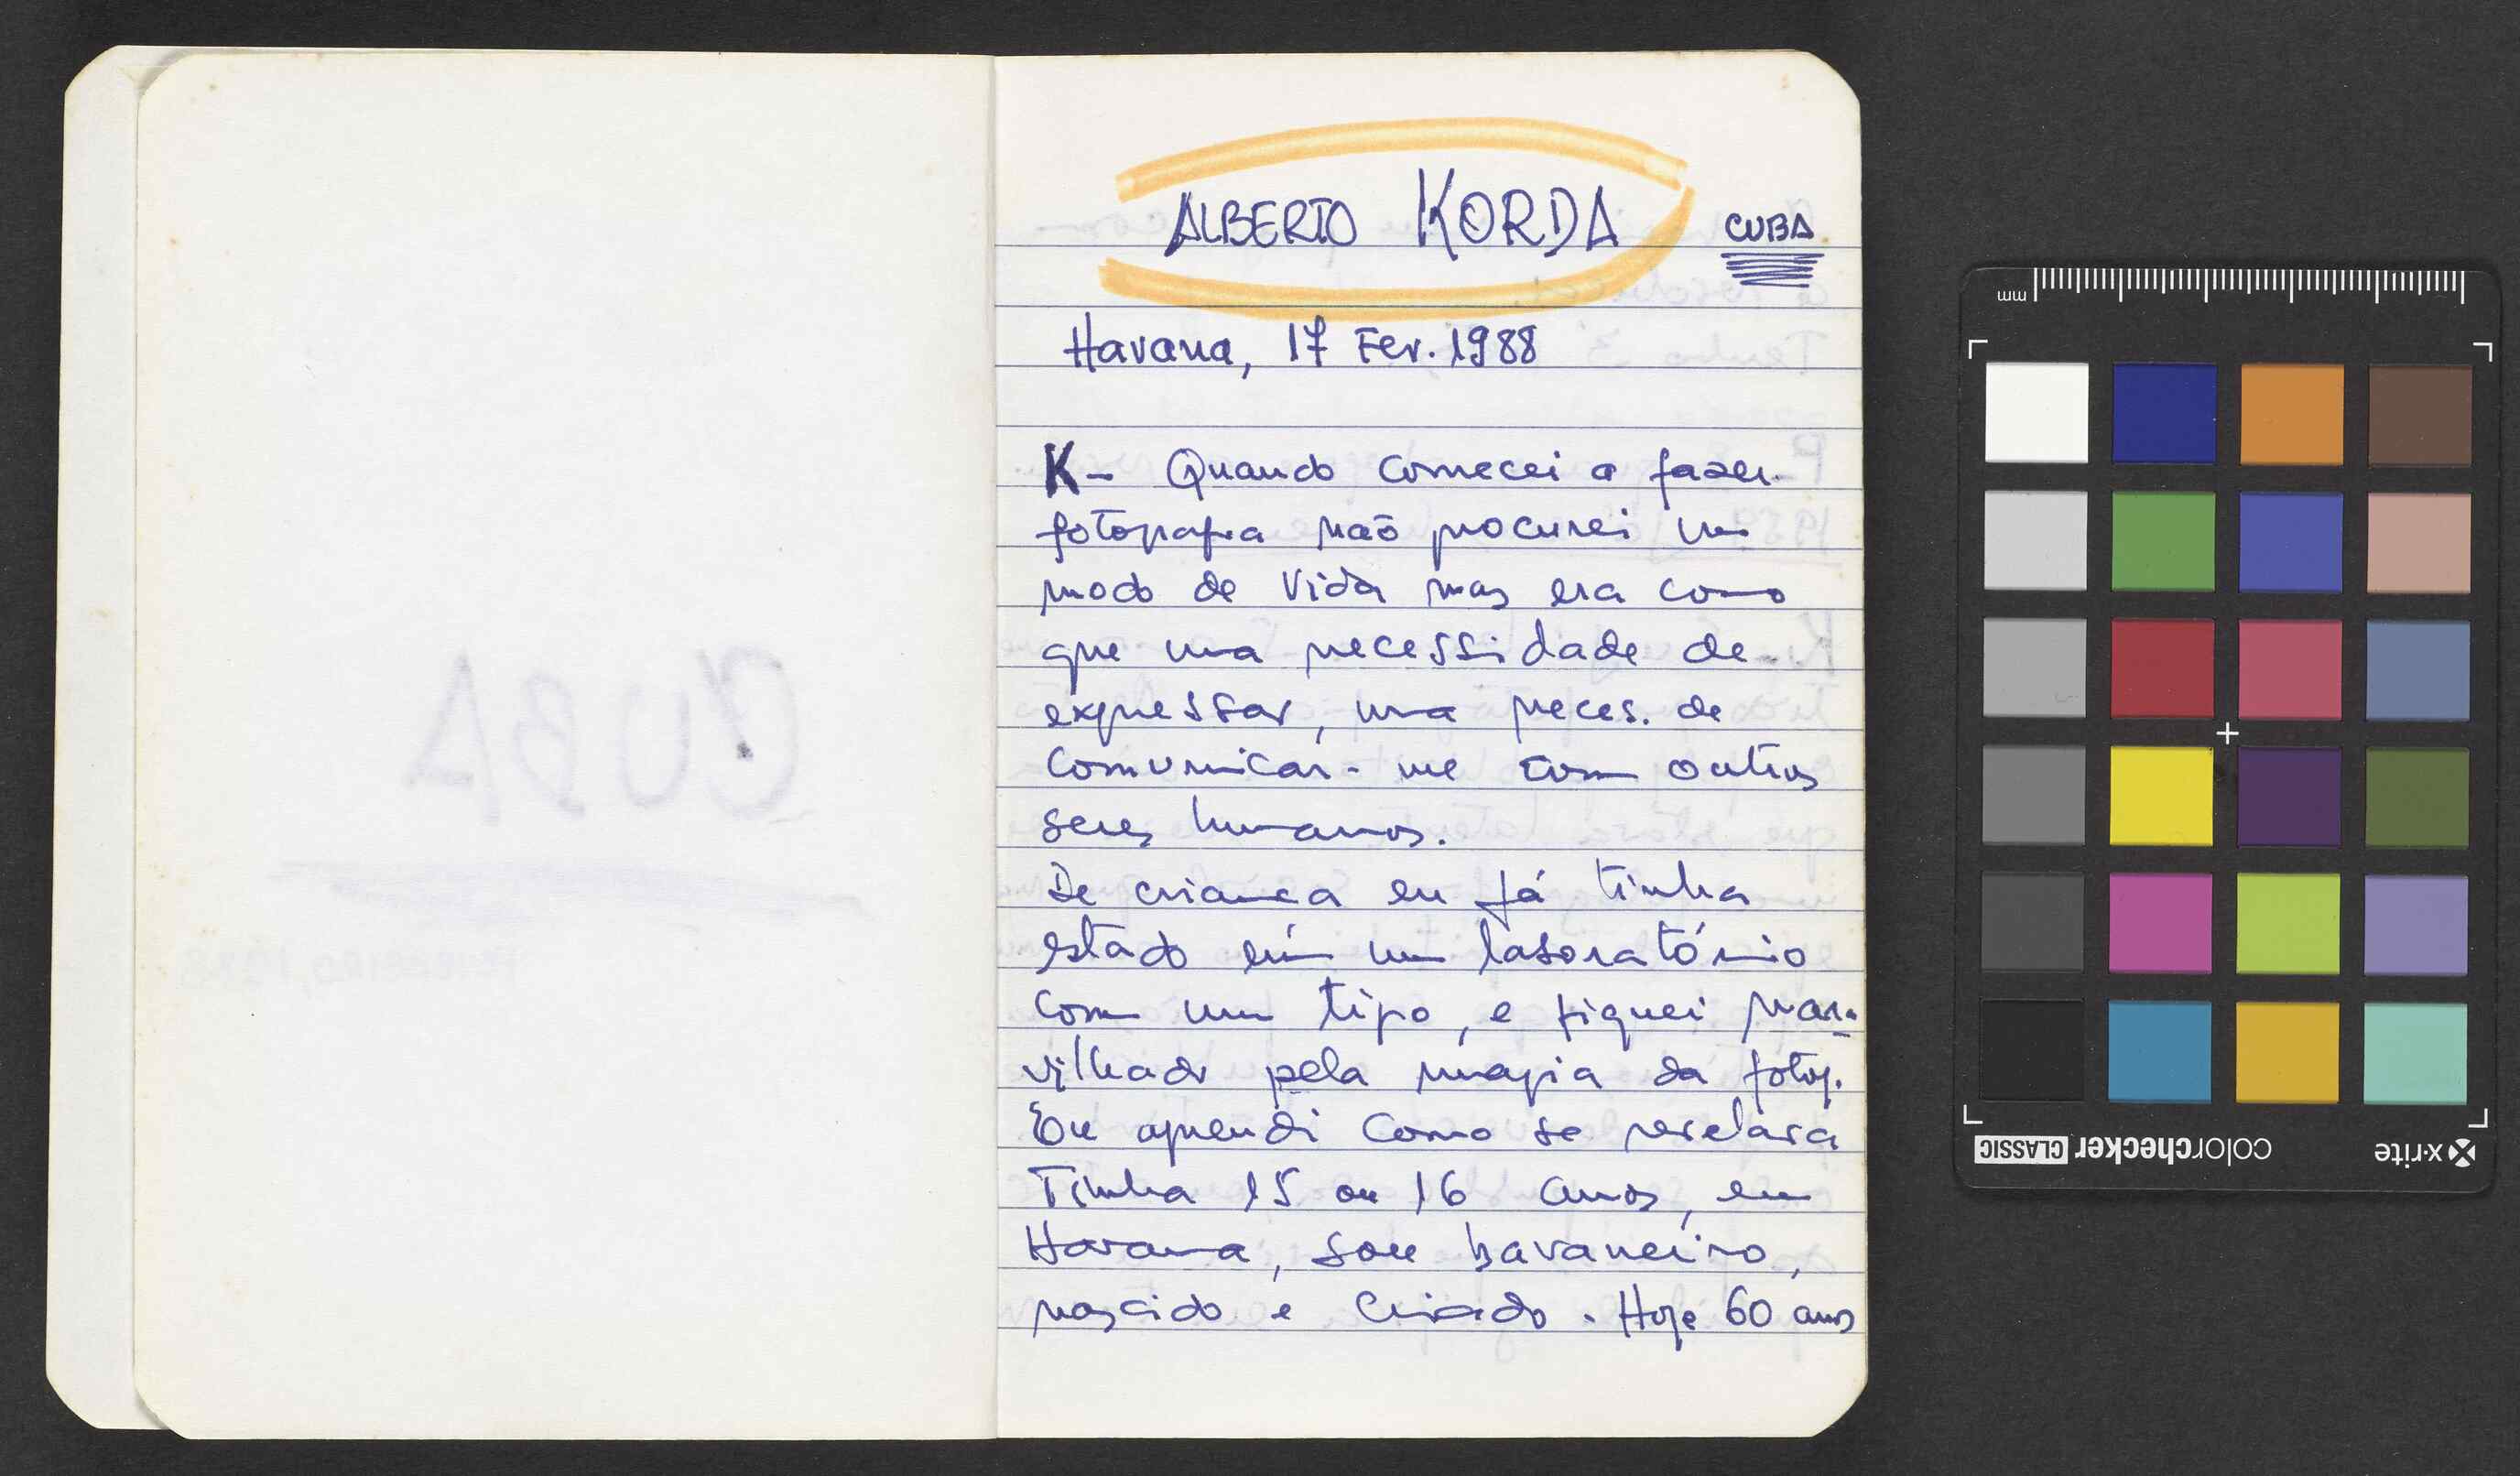 ALBERTO KORDA CUBA
Havana, 17 Fev. 1988
K- Quando comecei a fazer
fotografia não procurei um
modo de vida mas era como
que uma necessidade de
expressar, uma neces. de
comunicar-me com outros
seres humanos.
De criança eu já tinha
estado em um laboratório
com um tipo, e fiquei mara-
vilhado pela magia da fotog.
Eu aprendi como se revelava
Tinha 15 ou 16 anos, em
Havana, sou havaneiro,
nascido e criado. Hoje 60 anos
CUBA
FEVEREIRO, 1988
mm
colorchecker CLASSIC
x-rite